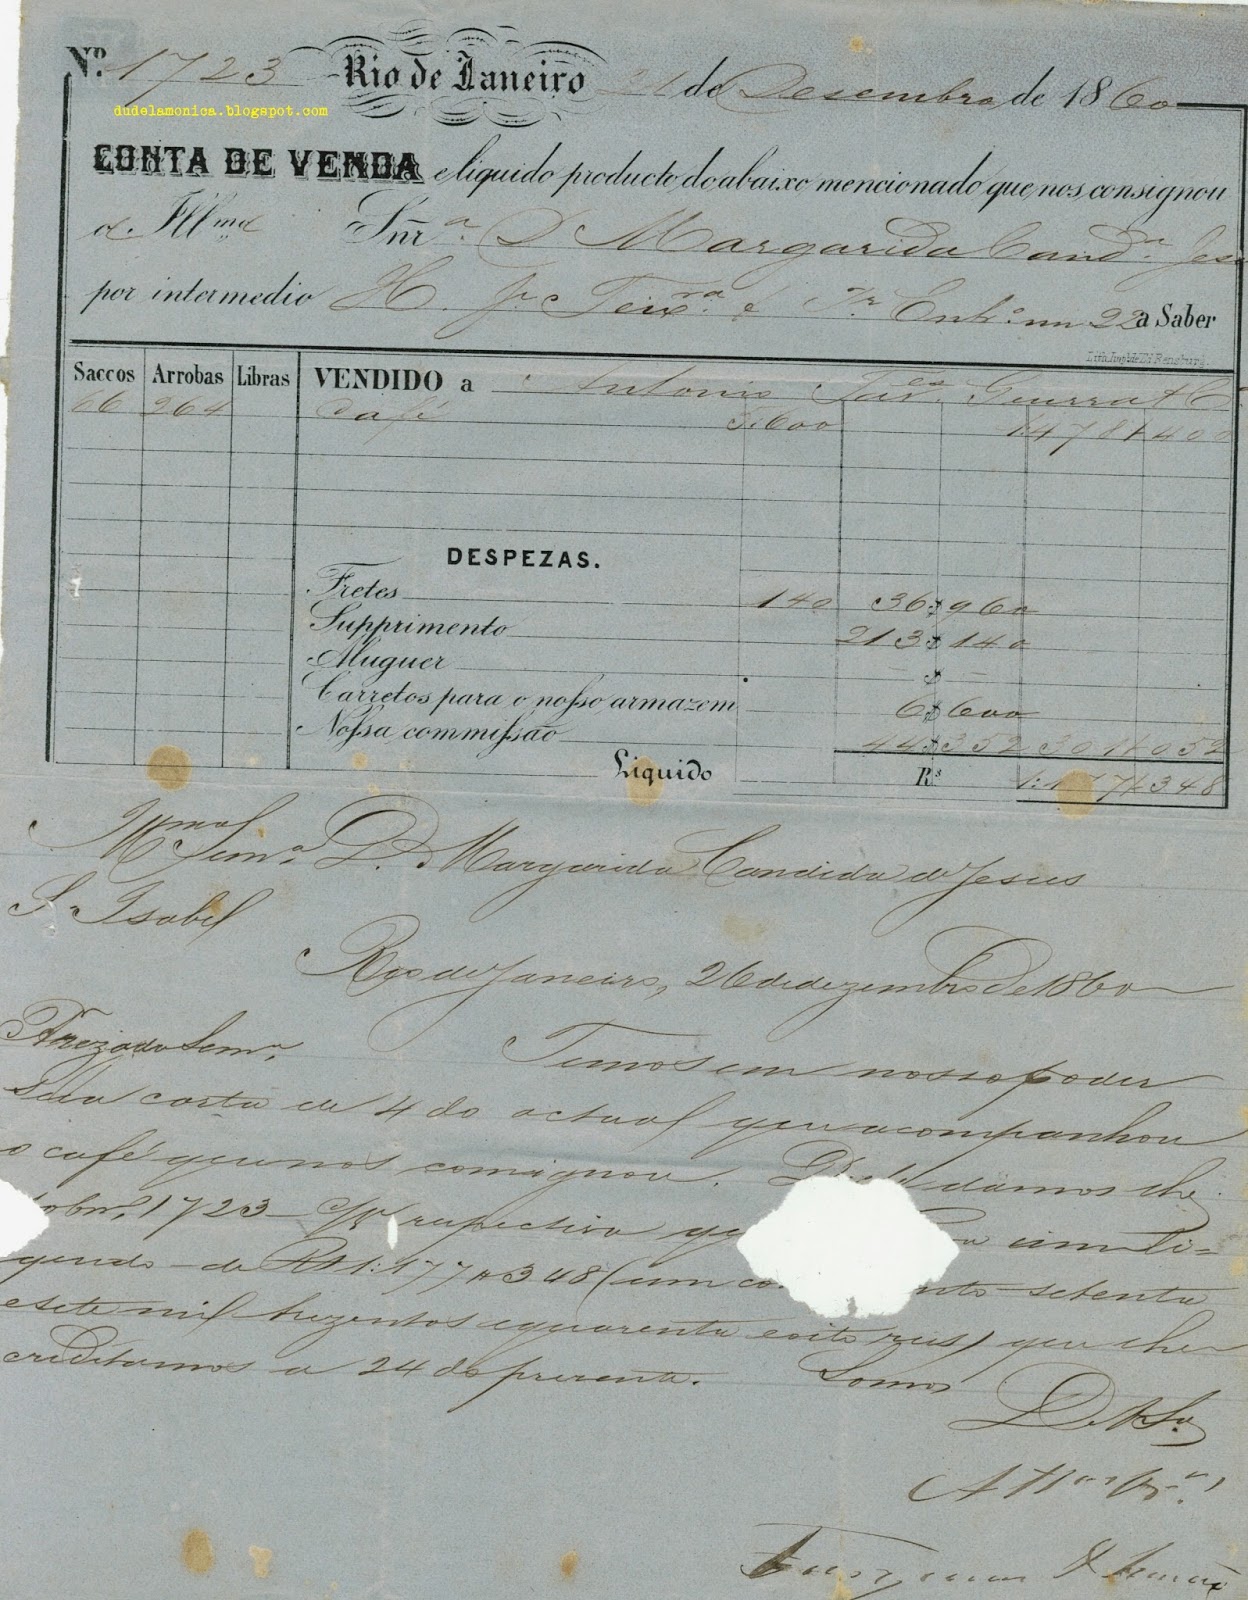 Nº 1723 Rio de Janeiro 21 de Desembro de 1860
dudelamonica.blogspot.com
CONTA DE VENDA e liquido producto do abaixo mencionado que nos consignou
a Illma Snrª D Margarida Candª Jesu
por intermedio H. Je Teixrª & Entrº em 22 a Saber
Lith. Imp. de Ed. Rensburg.
Saccos Arrobas Libras VENDIDO a Antonio Tavес Guerra & Cª
66 264 Café 5.600 1:478$400
DESPEZAS.
Fretes 140 36$960
Supprimento 213$140
Aluguer - $ -
Carretos para o nosso armazem 6$600
Nossa commissão 44$352 301$052
Liquido Rs 1:177$348
Illma Senrª D. Margarida Candida de Jesus
Sª Isabel
Rio de Janeiro, 26 de dezembro de 1860
Prezada Senrª Temos em nosso poder
Sua carta de 4 do actual que acompanhou
o café que nos consignou. Della damos lhe
sob nº 1723 respectiva um li=
quido de Rs 1:177$348 (um co nto setenta
e sete mil trezentos e quarenta e oito reis) que lhe
creditamos a 24 do presente. Somos
De V. Sª